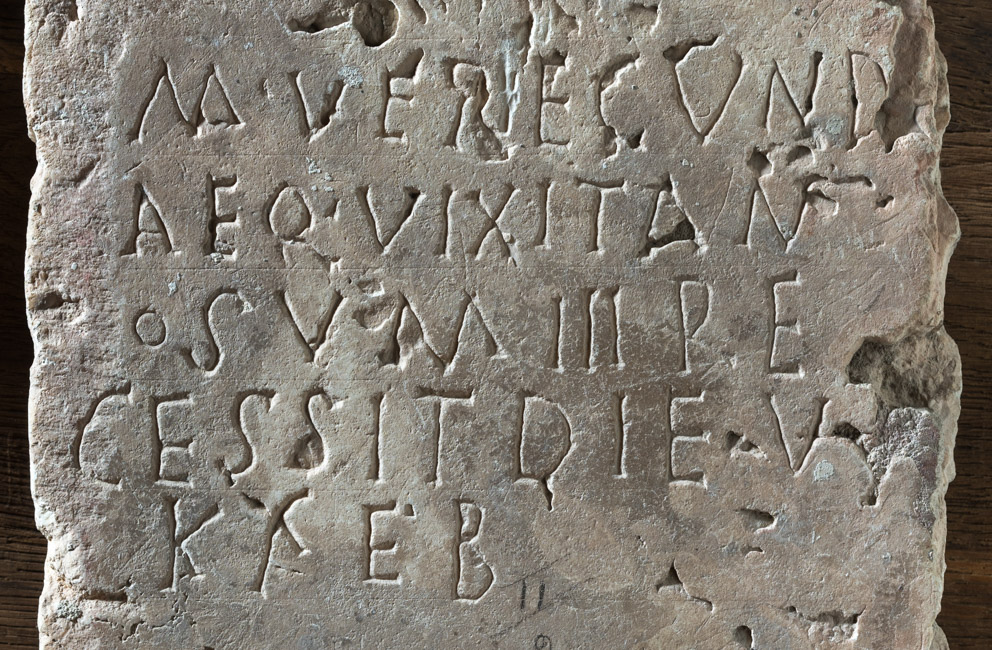 M VERECUND
AE Q VIXIT AN
OS VM III RE
CESSIT DIE V
KK FEB